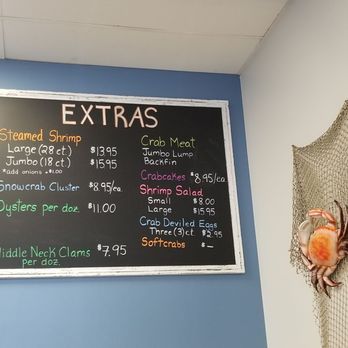 EXTRAS
Steamed Shrimp
Large (28 ct.) $13.95
Jumbo (18 ct.) $15.95
*add onions +$1.00
Snowcrab Cluster $8.95/ea.
Oysters per doz. $11.00
Middle Neck Clams $7.95
per doz.
Crab Meat
Jumbo Lump
Backfin
Crabcakes $8.95/ea.
Shrimp Salad
Small $8.00
Large $15.95
Crab Deviled Eggs
Three (3) ct. $2.95
Softcrabs $ —